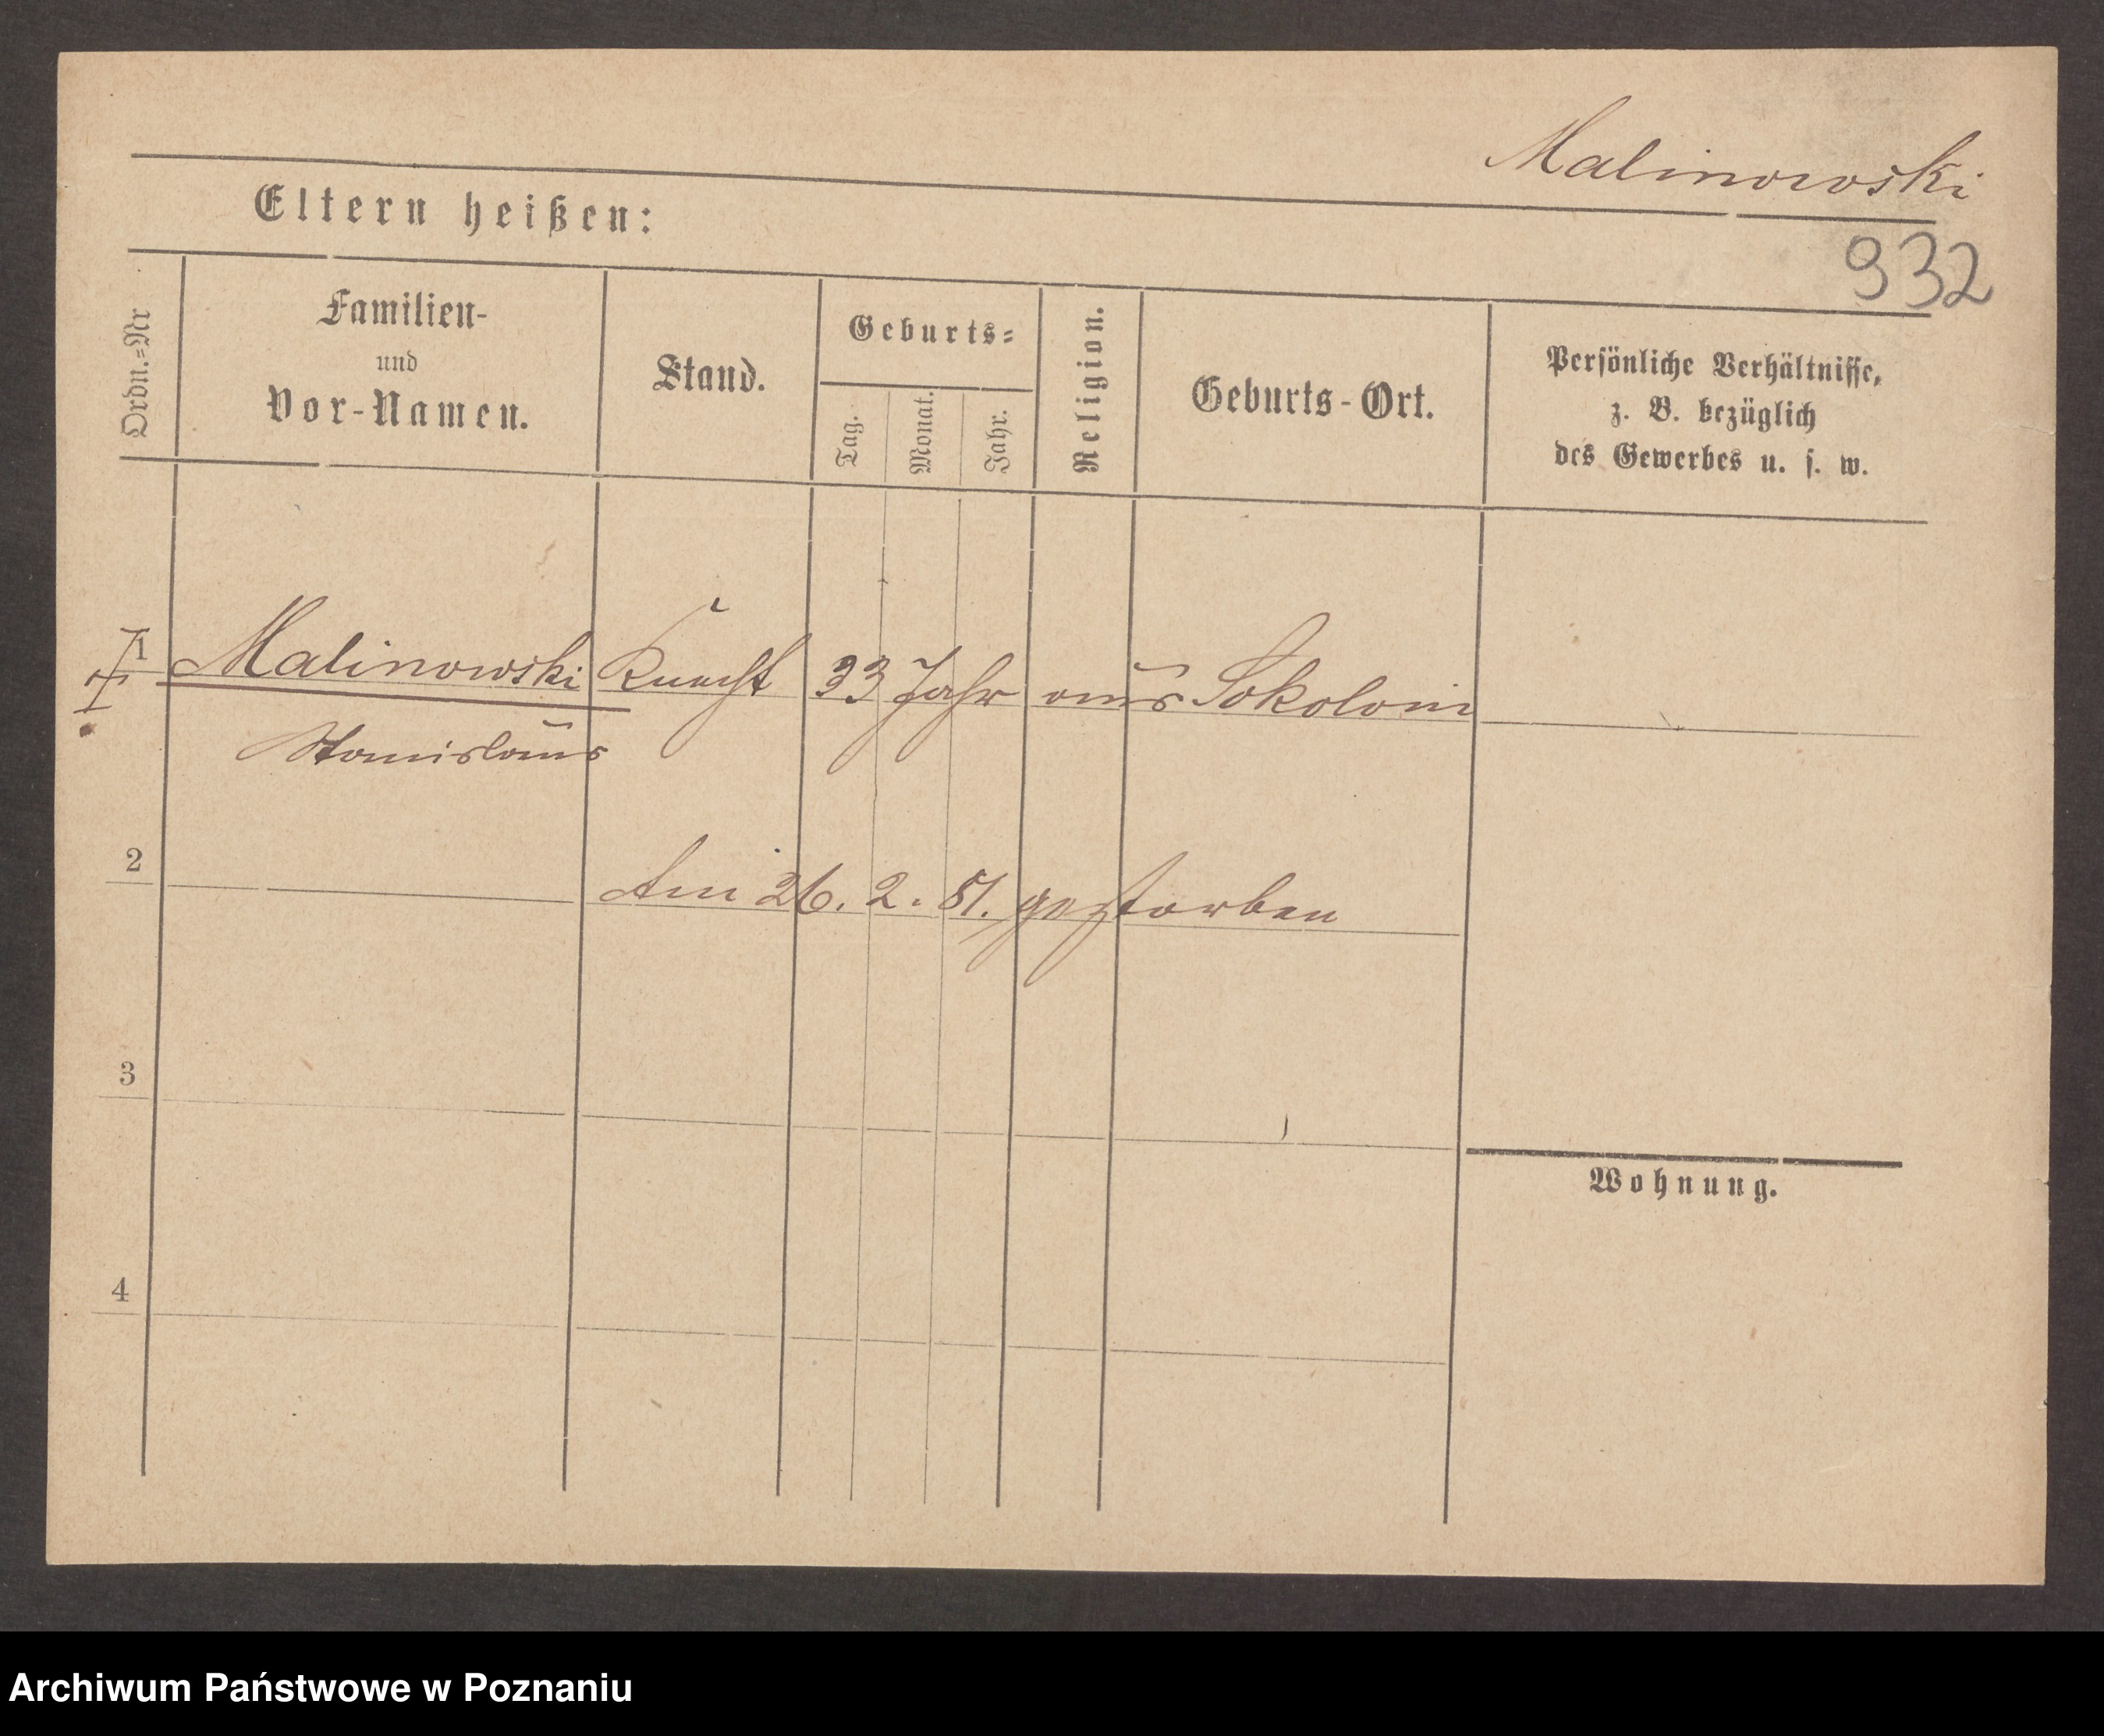 Malinowski
Eltern heißen:
932
Ordn.=Nr
Familien-
und
Vor-Namen.
Stand.
Geburts=
Tag.
Monat.
Jahr.
Religion.
Geburts-Ort.
Persönliche Verhältnisse,
z. B. bezüglich
des Gewerbes u. s. w.
1 Malinowski Knecht 33 Jahr aus
Stanislaus
2
Am 26. 2. 81. gestorben
3
Wohnung.
4
Archiwum Państwowe w Poznaniu